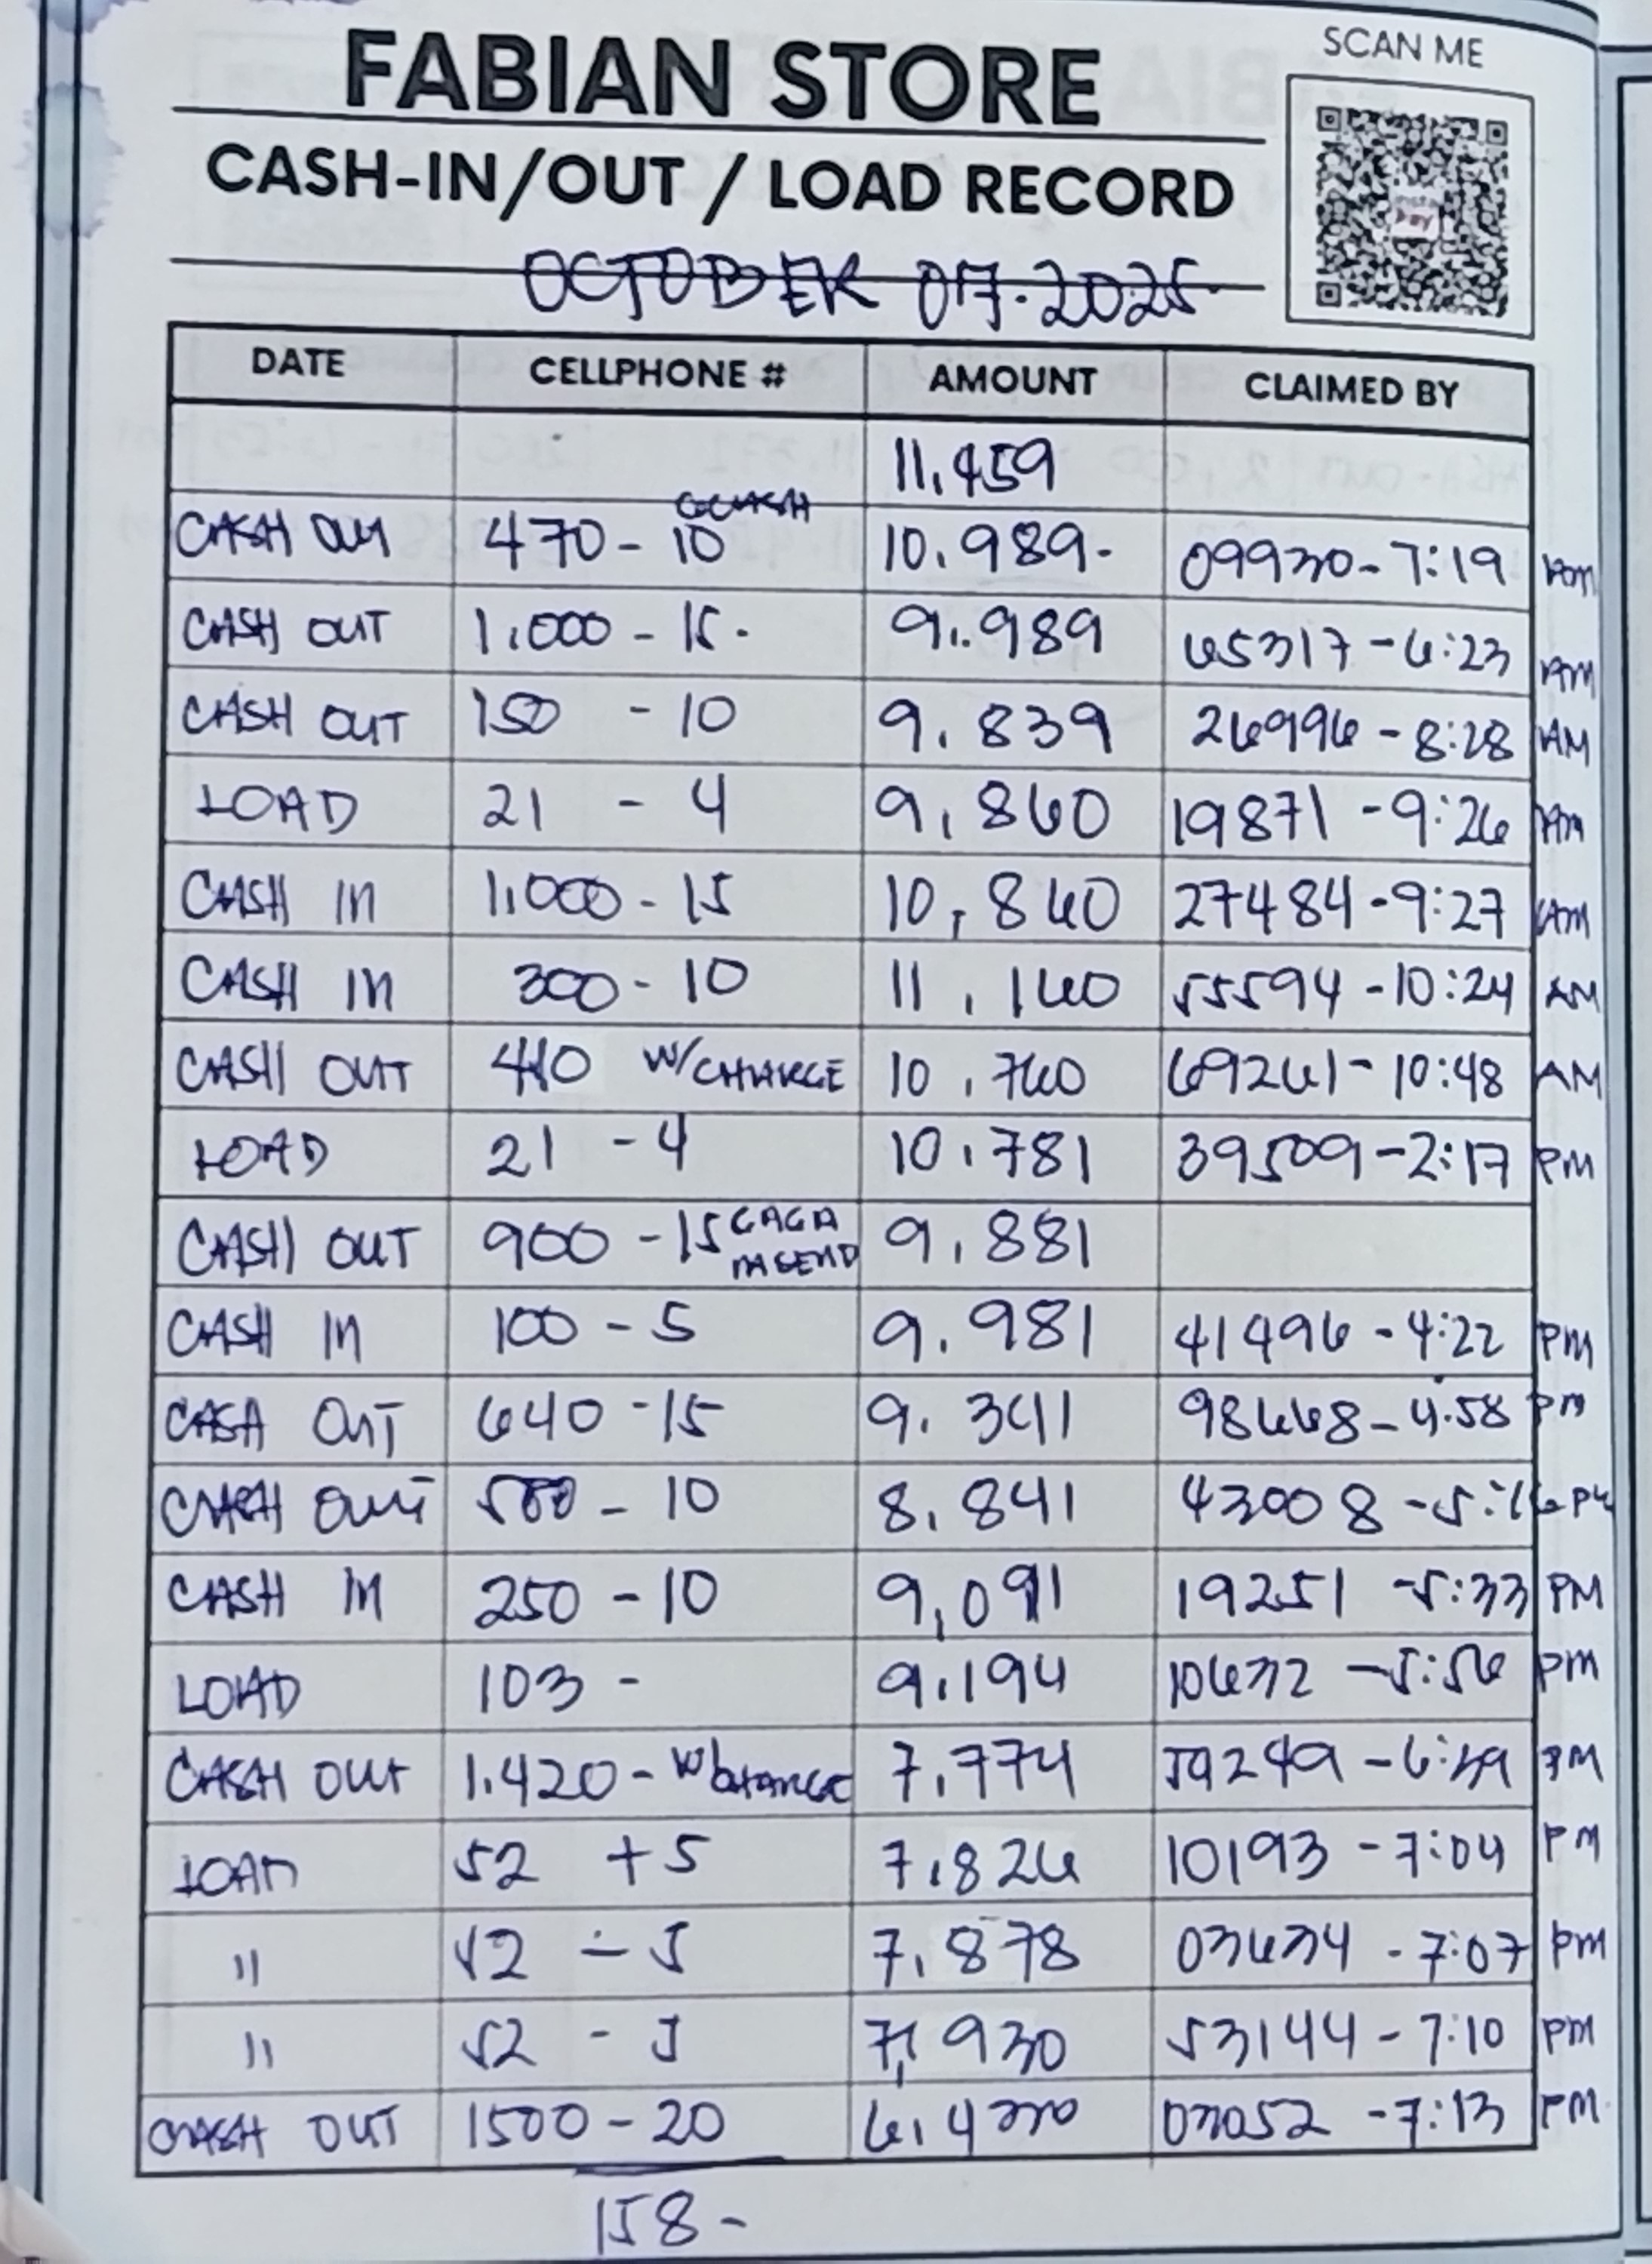 SCAN ME
FABIAN STORE
CASH-IN/OUT / LOAD RECORD
OCTOBER 07.2025
DATE CELLPHONE # AMOUNT CLAIMED BY
11,459
GCASH
CASH OUT 470 - 10 10.989- 09930 - 7:19 AM
CASH OUT 1,000 - 15. 9.989 65317 - 6:23 AM
CASH OUT 150 - 10 9.839 26996 - 8:28 AM
LOAD 21 - 4 9,860 19871 - 9:26 AM
CASH IN 1,000 - 15 10,860 27484 - 9:27 AM
CASH IN 300 - 10 11,160 55594 - 10:24 AM
CASH OUT 410 W/CHARGE 10,760 69261 - 10:48 AM
LOAD 21 - 4 10,781 39509 - 2:17 PM
CASH OUT 900 - 15 9,881
CASH IN 100 - 5 9.981 41496 - 4:22 PM
CASH OUT 640 - 15 9.341 98668 - 4:58 PM
CASH OUT 500 - 10 8,841 43008 - 5:16 PM
CASH IN 250 - 10 9,091 19251 - 5:33 PM
LOAD 103 - 9,194 10632 - 5:56 PM
CASH OUT 1,420 - W/CHARGE 7,774 59249 - 6:49 PM
LOAD 52 + 5 7,826 10193 - 7:04 PM
" 52 - 5 7,878 03634 - 7:07 PM
" 52 - 5 7,930 53144 - 7:10 PM
CASH OUT 1500 - 20 6,430 03052 - 7:13 PM
158 -